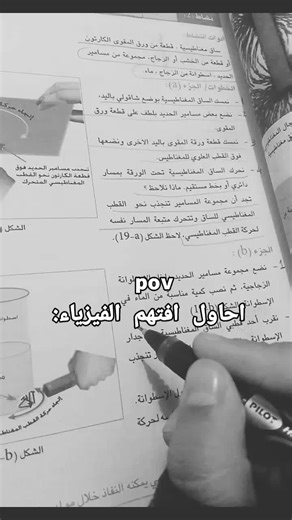 أدوات النشاط:
ساق مغناطيسية ، قطعة من ورق المقوى الكارتون
أو قطعة من الخشب أو الزجاج، مجموعة من مسامير
الحديد ، اسطوانة من الزجاج ، ماء.
الخطوات/ الجزء (a):
- نمسك الساق المغناطيسية بوضع شاقولي باليد،
- نضع بعض مسامير الحديد بلطف على قطعة ورق
المقوى.
- نمسك قطعة ورقة المقوى باليد الاخرى ونضعها
فوق القطب العلوي للمغناطيس.
- نحرك الساق المغناطيسية تحت الورقة بمسار
دائري أو بخط مستقيم. ماذا نلاحظ؟
نجد أن مجموعة المسامير تنجذب نحو القطب
المغناطيسي للساق وتتحرك متبعة المسار نفسه
لحركة القطب المغناطيسي. لاحظ الشكل (19-a)
تنجذب مسامير الحديد فوق
قطعة الكارتون نحو القطب
المغناطيسي المتحرك
الشكل
الجزء (b):
- نضع مجموعة مسامير الحديد
الزجاجية، ثم نصب كمية مناسبة من الماء في
الاسطوانة
- نقرب أحد قطبي الساق المغناطيسية جدار
تنجذب
الاسطوانة
لحركة
الشكل
pov
احاول افتهم الفيزياء:
PILOT